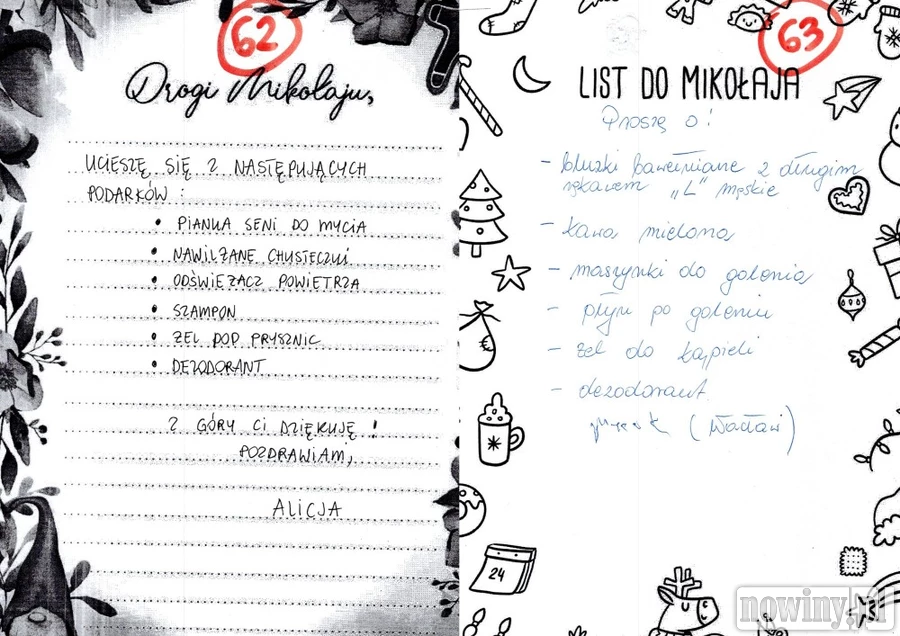 62
Drogi Mikołaju,
UCIESZĘ SIĘ Z NASTĘPUJĄCYCH
PODARKÓW :
• PIANKA SENI DO MYCIA
• NAWILŻANE CHUSTECZKI
• ODŚWIEŻACZ POWIETRZA
• SZAMPON
• ŻEL POD PRYSZNIC
• DEZODORANT
Z GÓRY CI DZIĘKUJĘ !
POZDRAWIAM,
ALICJA
63
LIST DO MIKOŁAJA
Proszę o!
- bluzki bawełniane z długim
rękawem „L" męskie
- kawa mielona
- maszynki do golenia
- płyn po goleniu
- żel do kąpieli
- dezodorant
(Wacław)
24
nowiny.pl